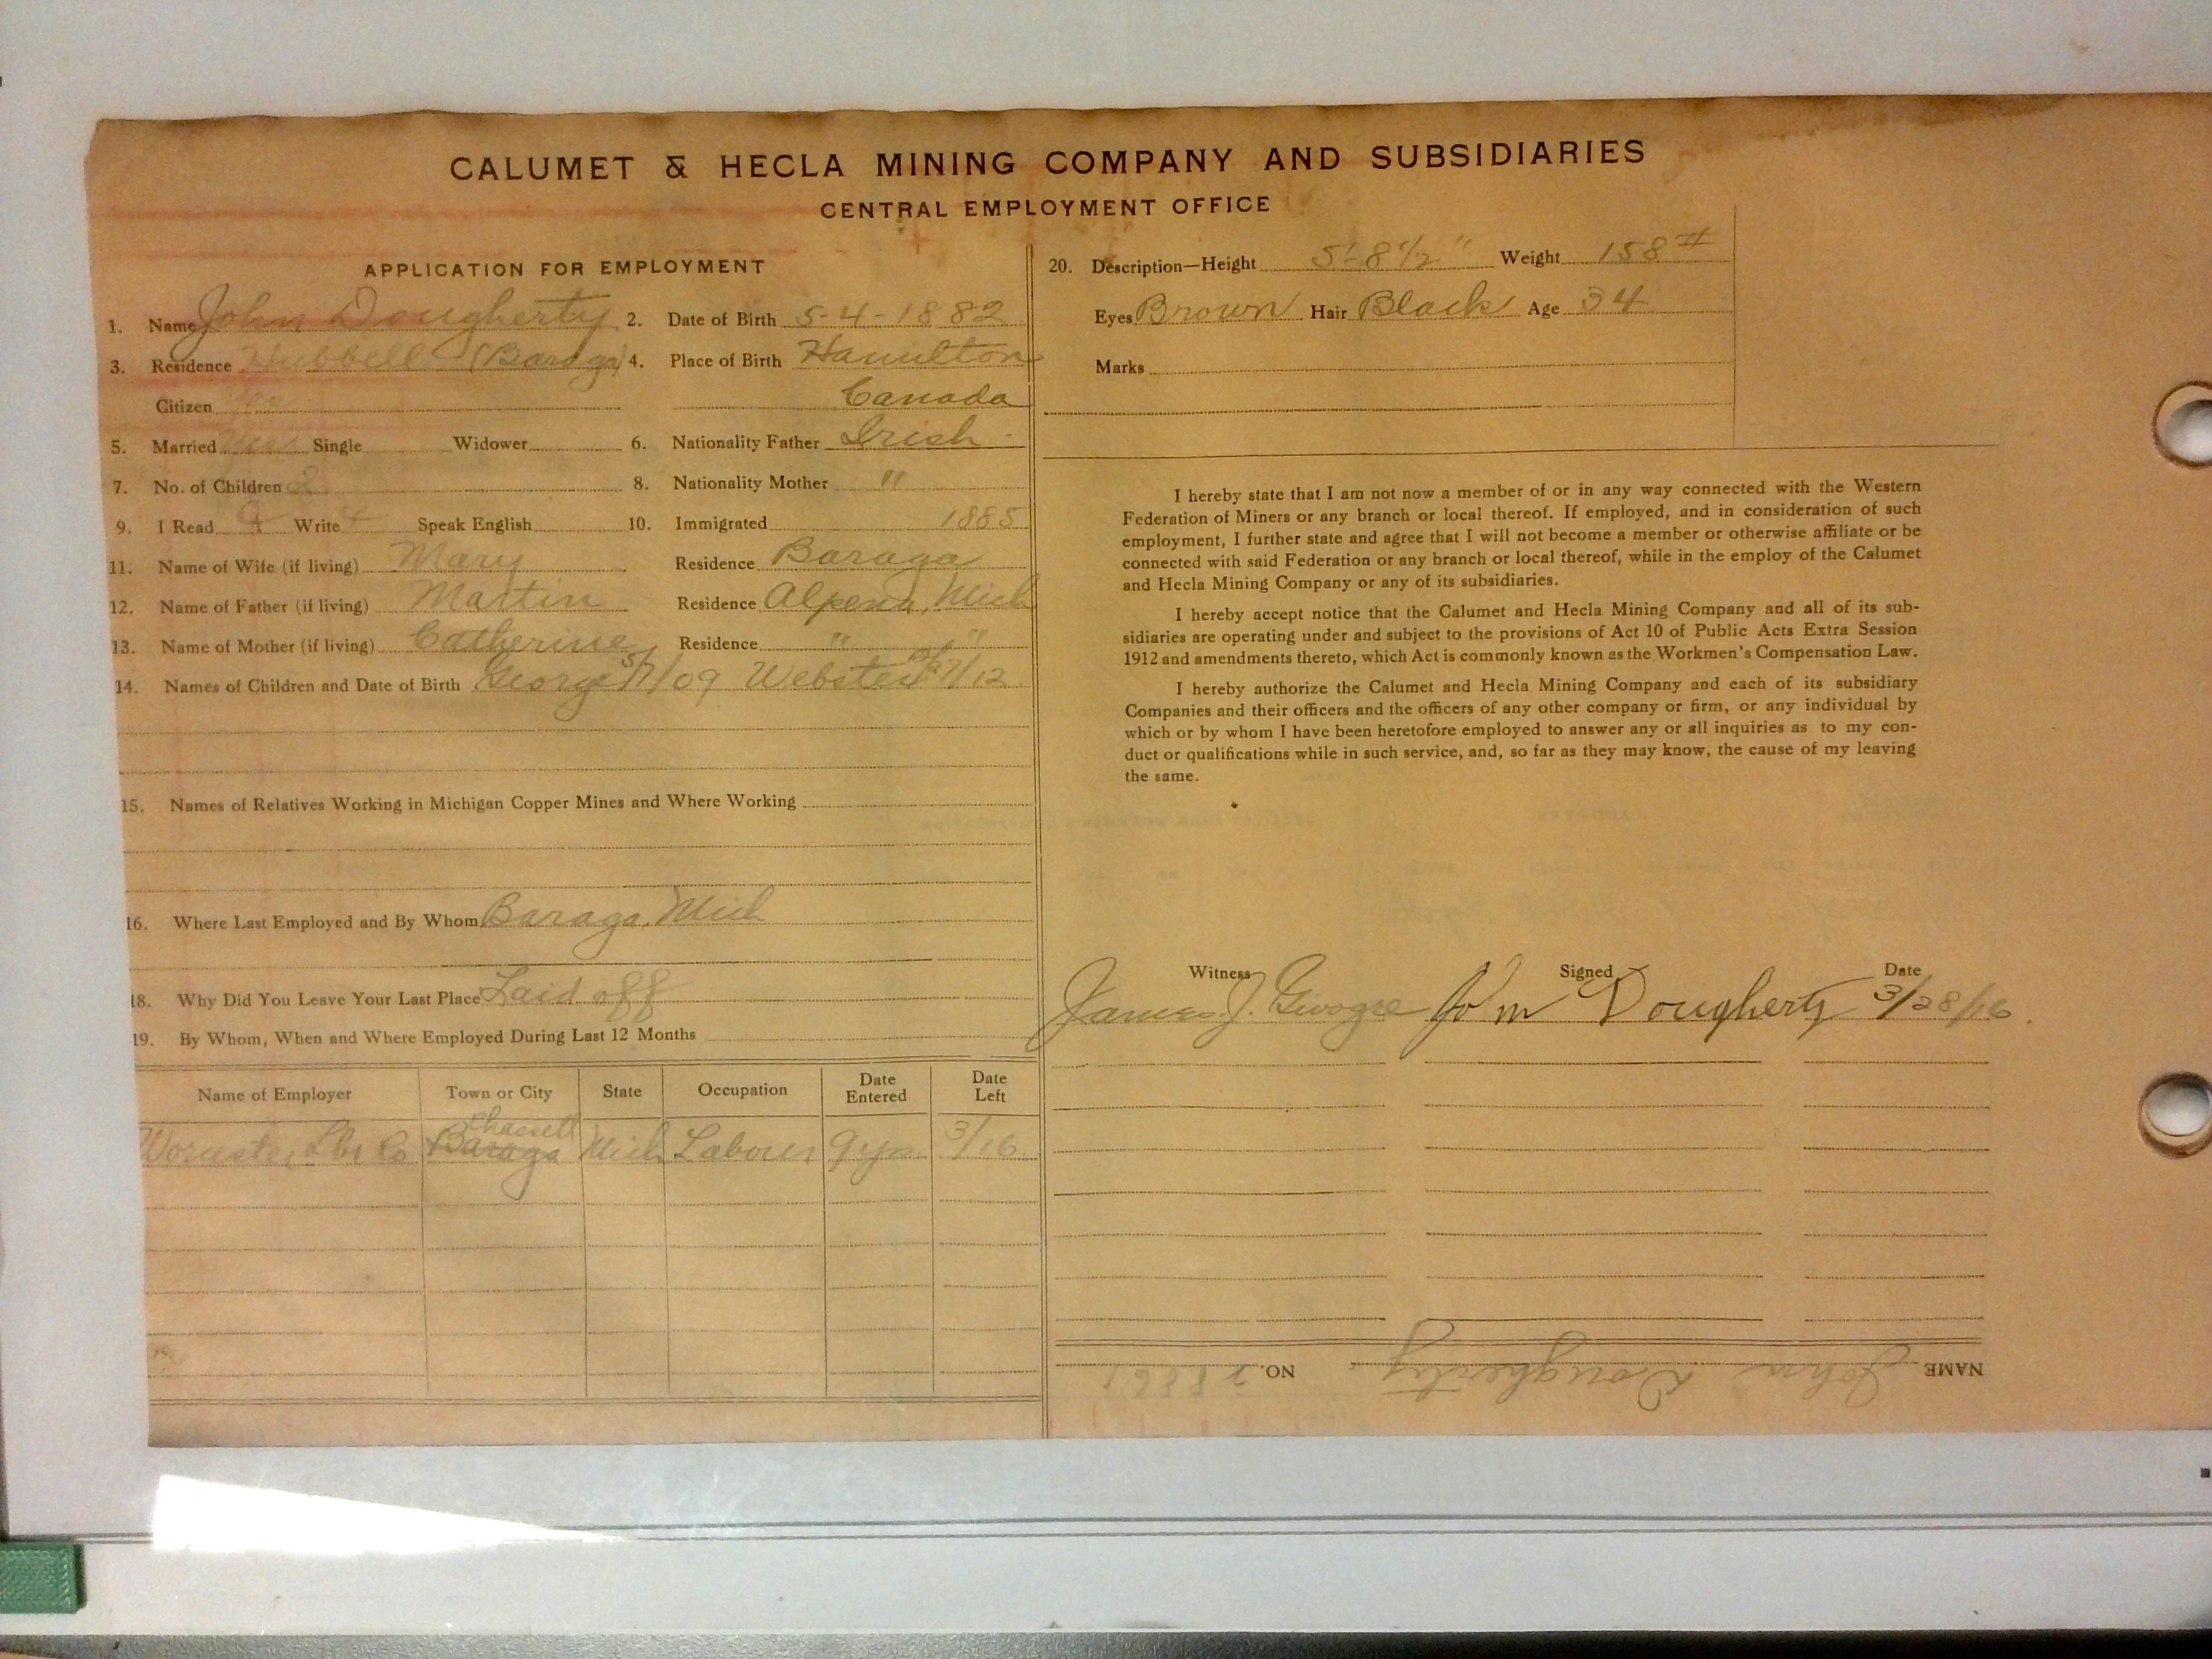 CALUMET & HECLA MINING COMPANY AND SUBSIDIARIES
CENTRAL EMPLOYMENT OFFICE
APPLICATION FOR EMPLOYMENT
1. Name John Dougherty 2. Date of Birth 5-4-1882
3. Residence Hubbell (Baraga) 4. Place of Birth Hamilton
Citizen Yes Canada
5. Married Yes Single Widower 6. Nationality Father Irish
7. No. of Children 2 8. Nationality Mother "
9. I Read Write Speak English 10. Immigrated 1885
11. Name of Wife (if living) Mary Residence Baraga
12. Name of Father (if living) Martin Residence Alpena, Mich
13. Name of Mother (if living) Catherine Residence " "
14. Names of Children and Date of Birth George 5/7/09 Webster /12
15. Names of Relatives Working in Michigan Copper Mines and Where Working
16. Where Last Employed and By Whom Baraga, Mich
18. Why Did You Leave Your Last Place Laid off
19. By Whom, When and Where Employed During Last 12 Months
Name of Employer Town or City State Occupation Date Entered Date Left
Chassell
Worcester Lbr Co Baraga Mich Laborer 9 yrs 3/16
20. Description—Height 5'-8 1/2" Weight 158 #
Eyes Brown Hair Black Age 34
Marks
I hereby state that I am not now a member of or in any way connected with the Western
Federation of Miners or any branch or local thereof. If employed, and in consideration of such
employment, I further state and agree that I will not become a member or otherwise affiliate or be
connected with said Federation or any branch or local thereof, while in the employ of the Calumet
and Hecla Mining Company or any of its subsidiaries.
I hereby accept notice that the Calumet and Hecla Mining Company and all of its sub-
sidiaries are operating under and subject to the provisions of Act 10 of Public Acts Extra Session
1912 and amendments thereto, which Act is commonly known as the Workmen's Compensation Law.
I hereby authorize the Calumet and Hecla Mining Company and each of its subsidiary
Companies and their officers and the officers of any other company or firm, or any individual by
which or by whom I have been heretofore employed to answer any or all inquiries as to my con-
duct or qualifications while in such service, and, so far as they may know, the cause of my leaving
the same.
Witness Signed Date
James J. John Dougherty 3/28/16
NAME John Dougherty NO.